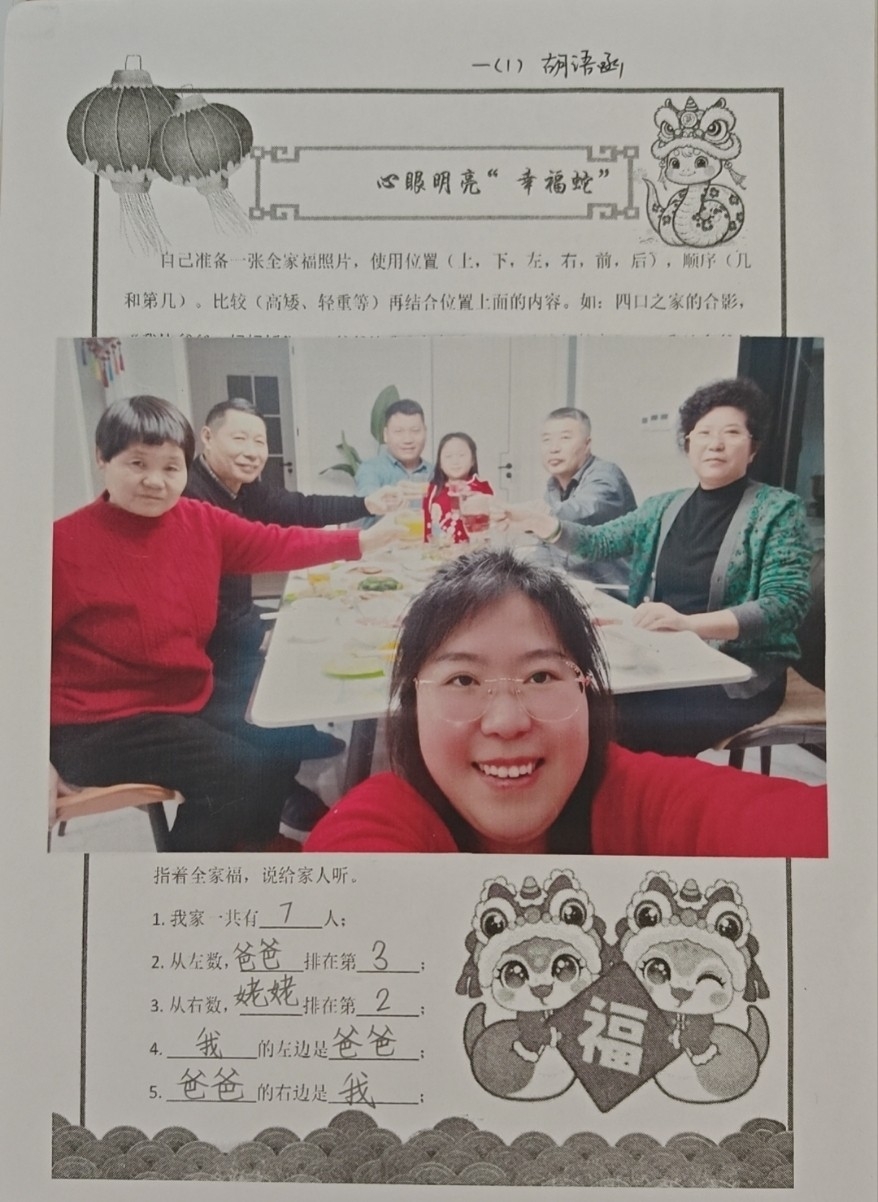 一(1) 胡语函
心眼明亮“幸福蛇”
自己准备一张全家福照片，使用位置（上，下，左，右，前，后），顺序（几
和第几）。比较（高矮、轻重等）再结合位置上面的内容。如：四口之家的合影，
指着全家福，说给家人听。
1. 我家一共有 7 人；
2. 从左数，爸爸 排在第 3 ；
3. 从右数，姥姥 排在第 2 ；
4. 我 的左边是 爸爸 ；
5. 爸爸 的右边是 我 ；
福